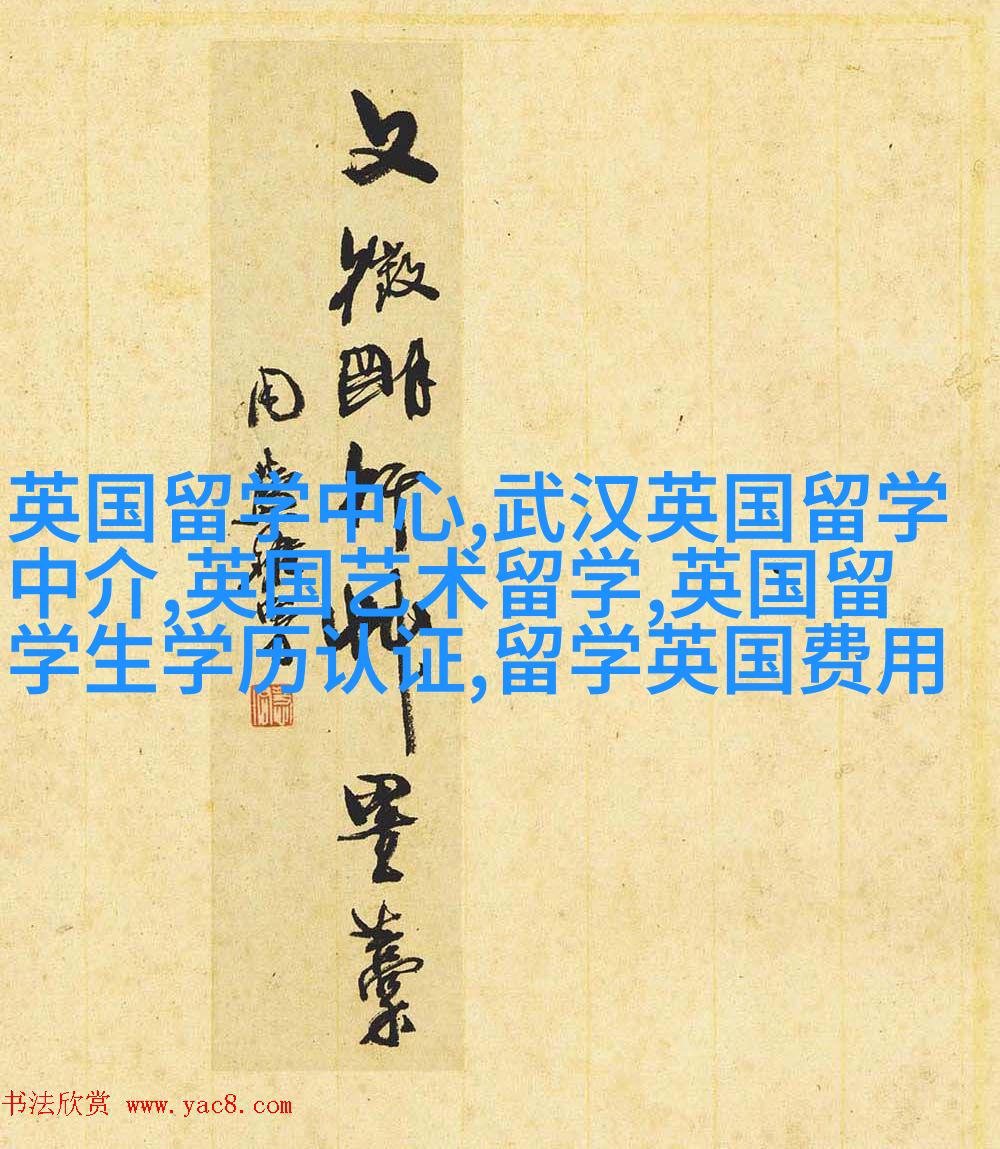 文徵明行
墨藁
英国留学中心,武汉英国留学
中介,英国艺术留学,英国留
学生学历认证,留学英国费用
书法欣赏 www.yac8.com